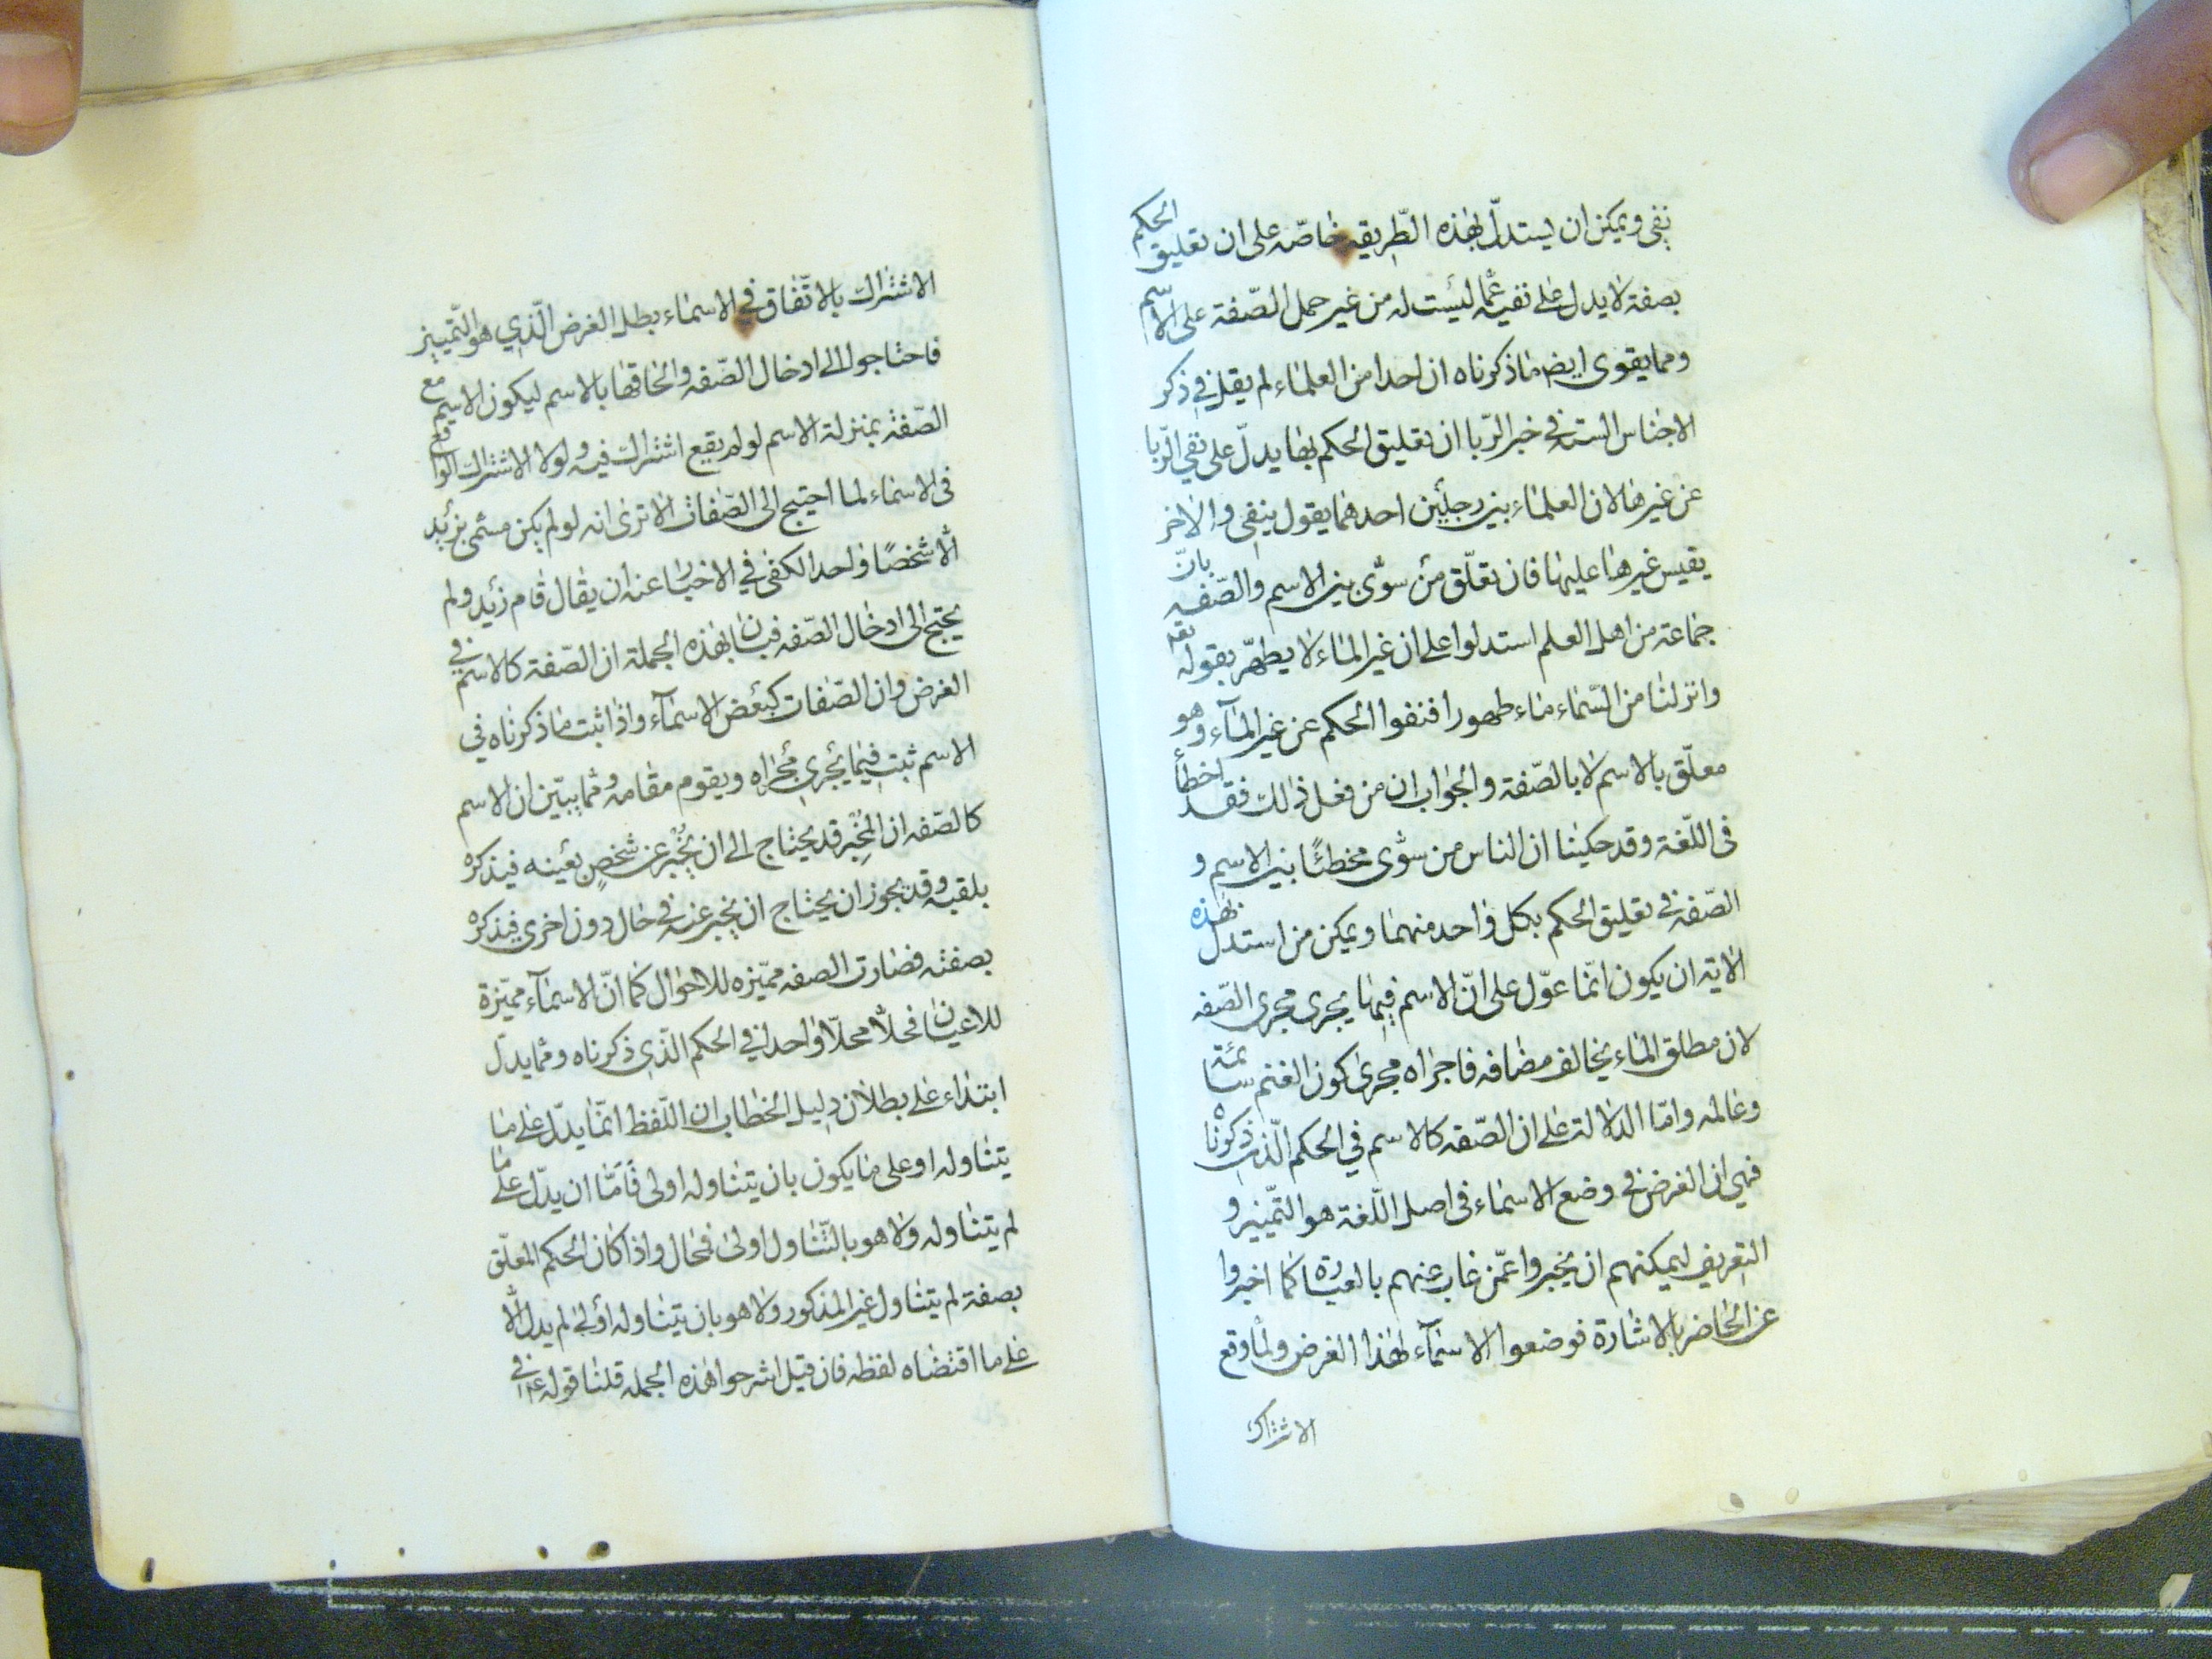 نفى ويمكن ان يستدلّ بهذه الطّريقه خاصّه على ان تعليق الحكم
بصفة لا يدل على نفيه عمّا ليست له من غير حمل الصّفة على الاسم
ومما يقوى ايض ما ذكرناه ان احدا من العلماء لم يقل فى ذكر
الاجناس الستة فى خبر الرّبا ان تعليق الحكم بها يدلّ على نفي الرّبا
عن غيرها لان العلماء بين رجلين احدهما يقول ينفى والاخر
يقيس غيرها عليها فان تعلّق من سوّى بين الاسم والصّفه بانّ
جماعة من اهل العلم استدلوا على ان غير الماء لا يطهّر بقوله تعه
وانزلنا من السّماء ماء طهورا فنفوا الحكم عن غير المآء وهو
معلّق بالاسم لا بالصّفة والجواب ان من فعل ذالك فقد اخطأ
فى اللّغة وقد حكينا ان الناس من سوّى مخطئًا بين الاسم و
الصّفه فى تعليق الحكم بكل واحد منهما ويمكن من استدل بهذه
الاية ان يكون انّما عوّل على انّ الاسم فيها يجرى مجرى الصّفه
لان مطلق الماء يخالف مضافه فاجراه مجرى كون الغنم سائمة
وعالمه وامّا الدّلالة على ان الصّفه كالاسم في الحكم الّذى ذكرناه
فهي ان الغرض فى وضع الاسماء فى اصل اللّغة هو التّمييز و
التعريف ليمكنهم ان يخبروا عمّن غاب عنهم بالعبارة كما اخبروا
عن الحاضر بالاشارة فوضعوا الاسمآء لهذا الغرض ولمّا وقع
الاشتراك
الاشتراك بالاتّفاق في الاسماء بطل الغرض الّذي هو التّمييز
فاحتاجوا الى ادخال الصّفه والحاقها بالاسم ليكون الاسم مع
الصّفة بمنزلة الاسم لو لم يقع اشتراك فيه ولولا الاشتراك الواقع
فى الاسماء لما احتيج الى الصّفات الا ترى انه لو لم يكن مسمّى بزيد
الّا شخصًا واحدا لكفى في الاخبار عنه ان يقال قام زيد ولم
يحتج الى ادخال الصّفه فبان بهذه الجملة ان الصّفة كالاسم في
الغرض وان الصّفات كبعض الاسمآء واذا ثبت ما ذكرناه في
الاسم ثبت فيما يجرى مجراه ويقوم مقامه وممّا يبيّن ان الاسم
كالصّفه ان المخبر قد يحتاج الى ان يخبر عن شخص بعينه فيذكره
بلقبه وقد يجوز ان يحتاج ان يخبر عنه فى حال دون اخرى فيذكره
بصفته فصارت الصفه مميّزه للاحوال كما انّ الاسمآء مميّزة
للاعيان فحلّا محلّا واحدا في الحكم الّذى ذكرناه وممّا يدلّ
ابتداء على بطلان دليل الخطاب ان اللّفظ انّما يدلّ على ما
يتناوله او على ما يكون بان يتناوله اولى فامّا ان يدلّ على ما
لم يتناوله ولا هو بالتّناول اولى فمحال واذا كان الحكم المعلّق
بصفة لم يتناول غير المذكور ولا هو بان يتناوله اولى لم يدل الّا
على ما اقتضاه لفظه فان قيل اشرحوا هذه الجمله قلنا قوله ع فى